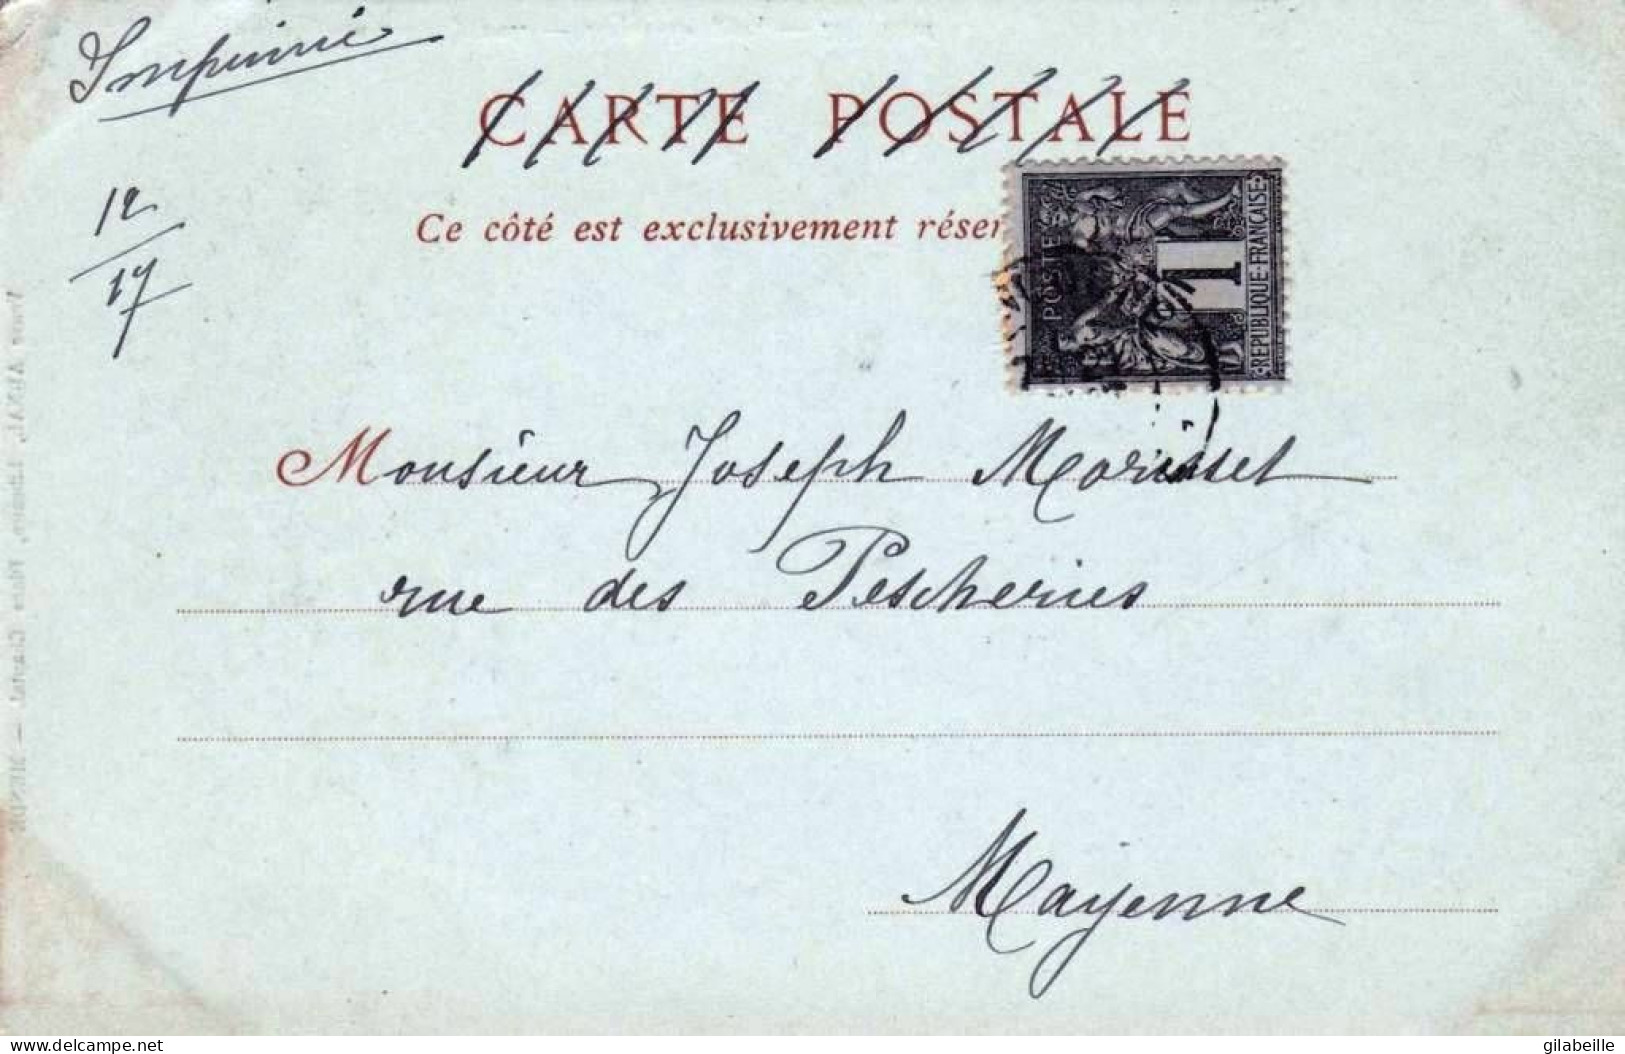 Imprimé
CARTE POSTALE
12
17
Ce côté est exclusivement réser
POSTES
1
REPUBLIQUE FRANÇAISE
Monsieur Joseph Morisset
rue des Pescheries
Mayenne
delcampe.net
gilabeille